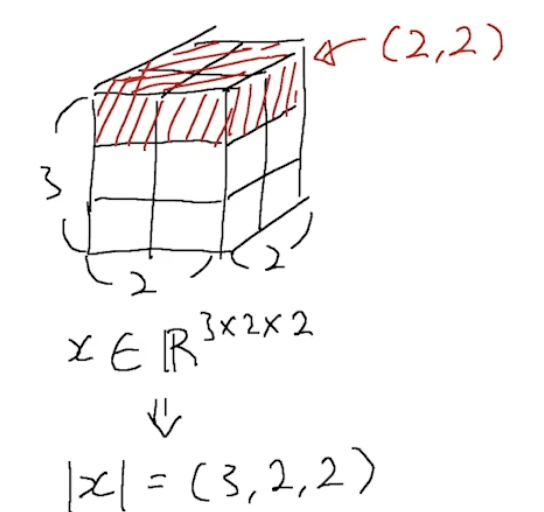 (2,2)
3
2
2
x ∈ ℝ^{3×2×2}
⇓
|x| = (3,2,2)